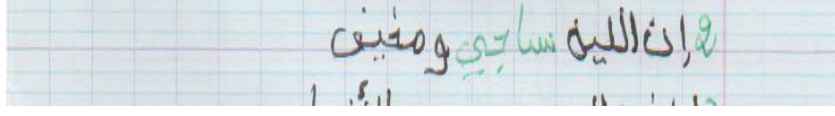 2 إن الليه ساجي ومخيف